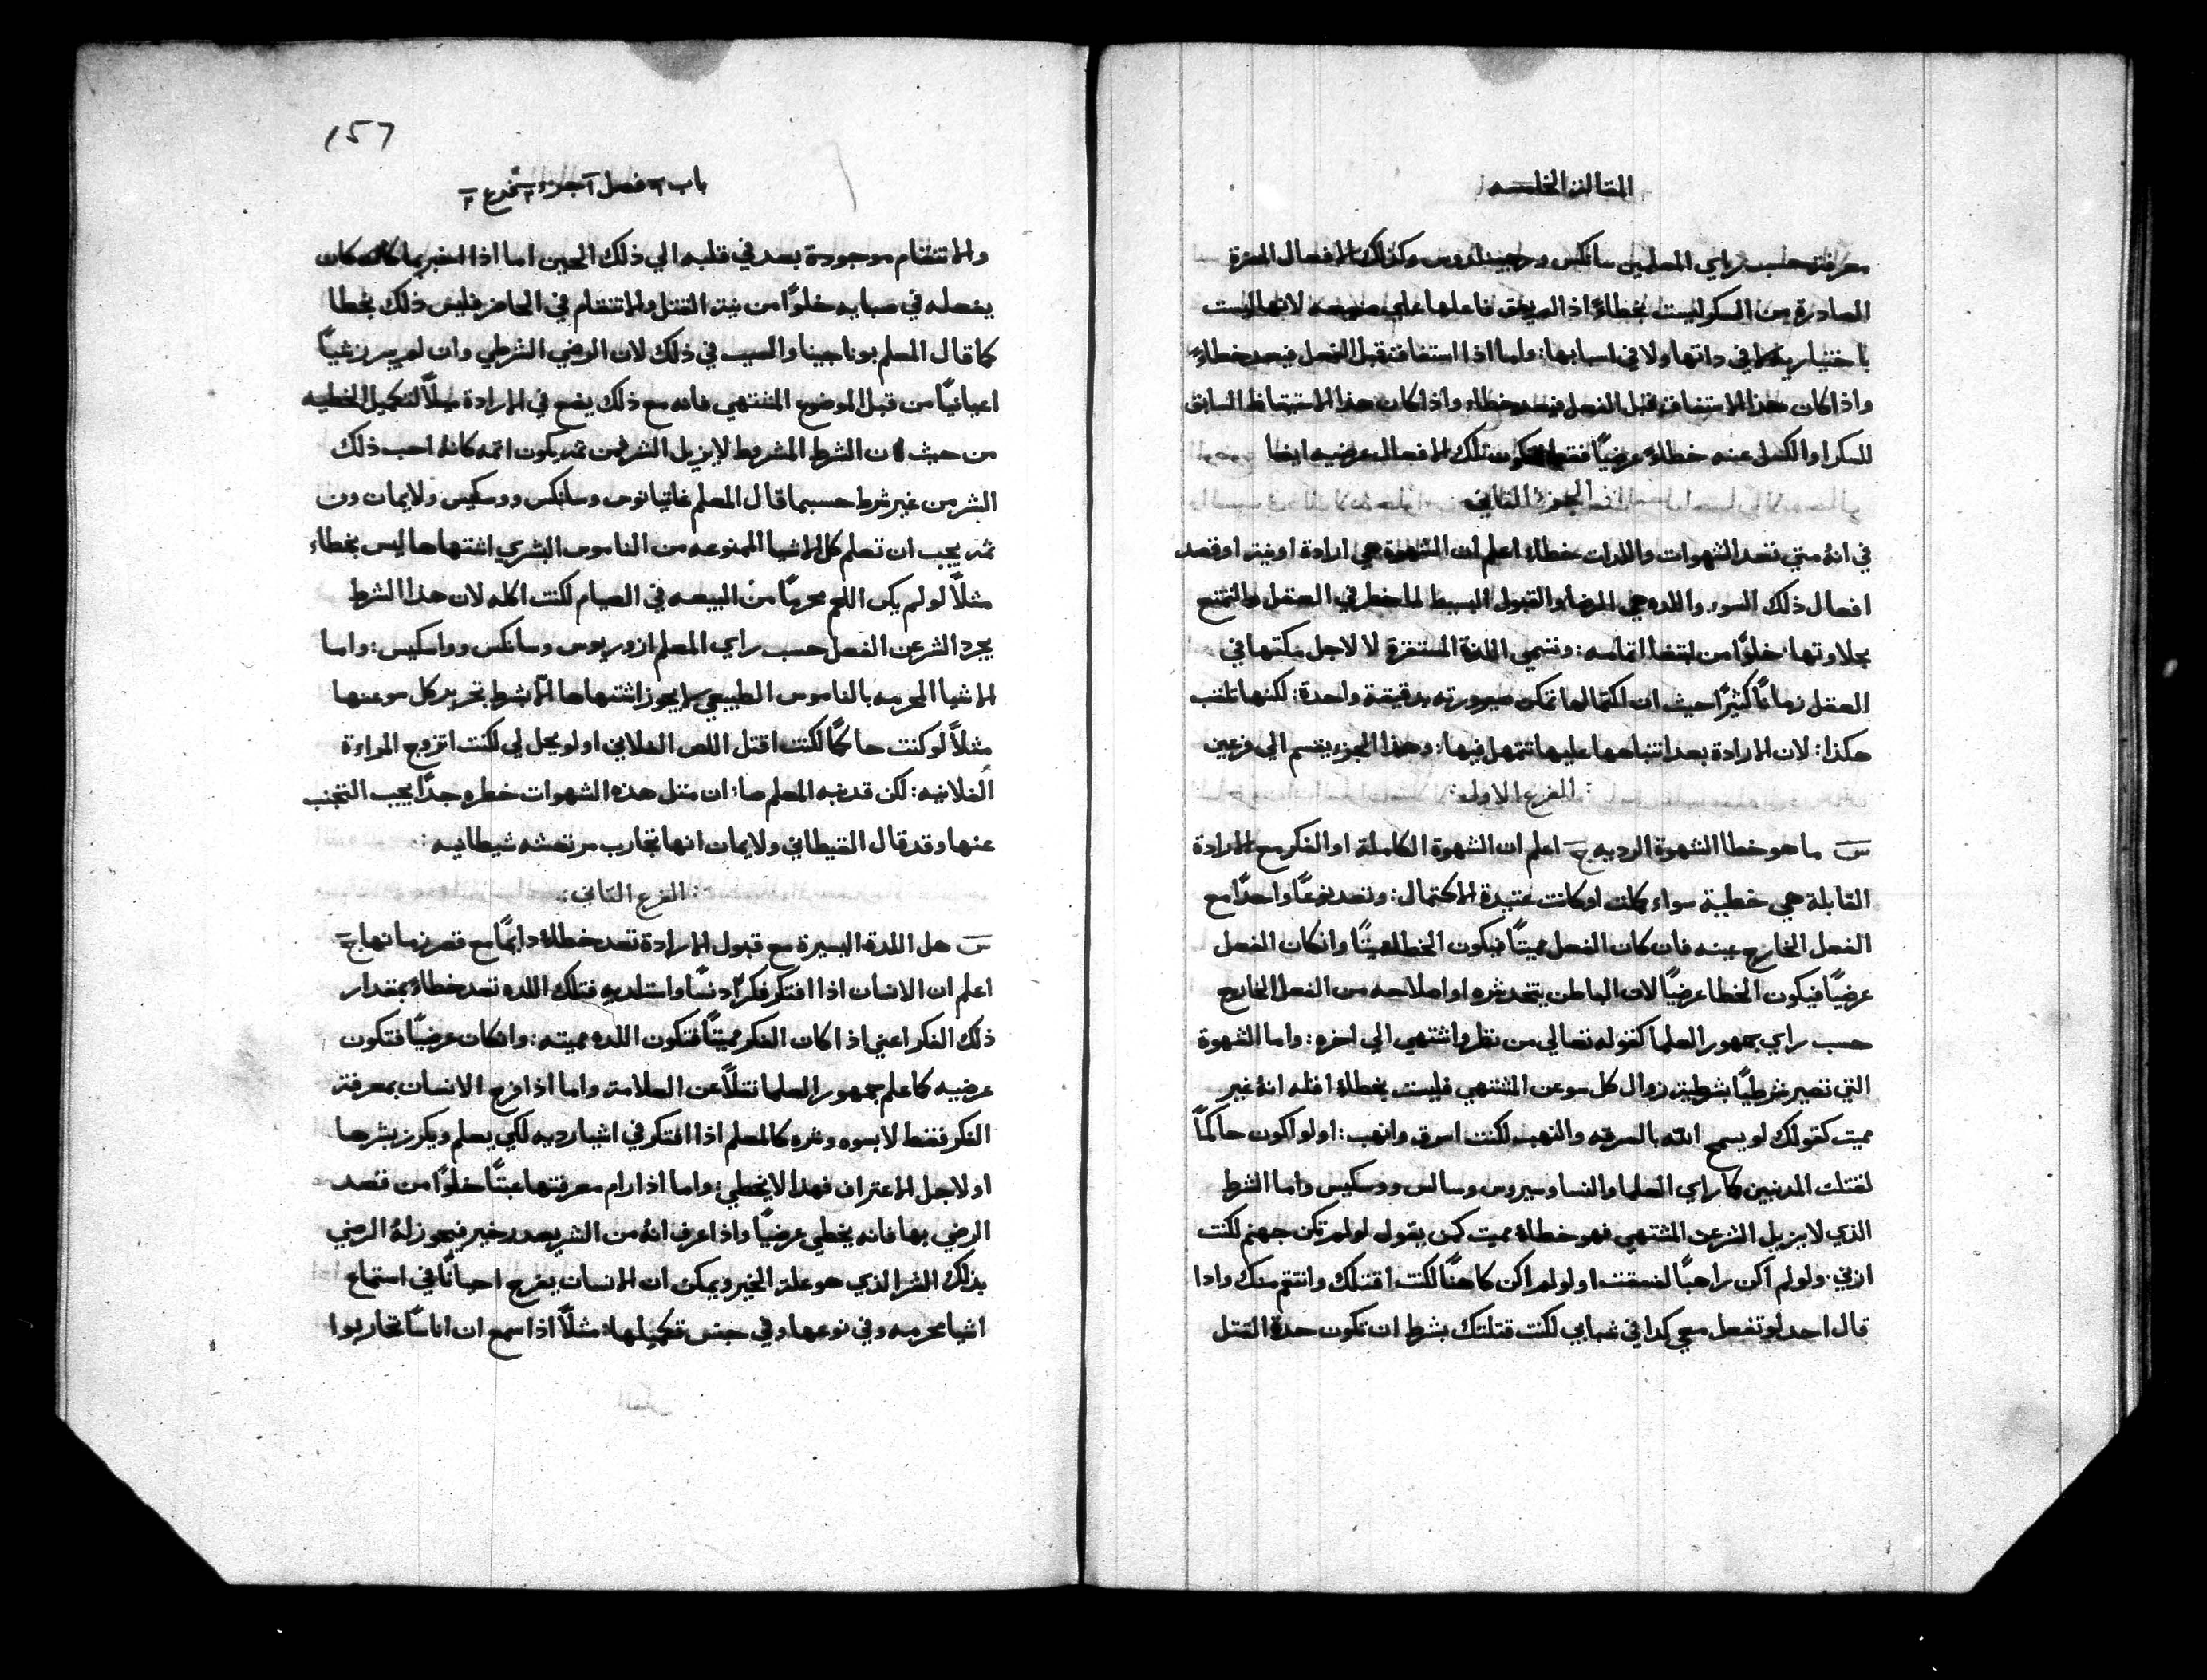 المقالة الخامسه
معرفته حسب راي المعلمين سانكس و وكذلك الافعال المضرة
الصادرة من السكر ليست بخطاءً اذا لم يفق فاعلها علي لانها ليست
باختياريه لا في داتها ولا في اسبابها: واما اذا استفاقت قبل الفعل فيعد خطاءً
واذا كان هذا الاستفاق قبل الفعل فيعد خطاء واذا كان هذا الاستيقاظ السابق
للسكر او الكسل عنه خطاءً عرضيًا فقط فتكون تلك الافعال عرضيه ايضا
الجزء الثاني
في انهُ متي تعد الشهوات واللدات خطاء اعلم ان الشهوة هي ارادة او نية او قصد
افعال ذلك السوء. واللده هي الرضا والقبول البسيط لما خطر في العقل والتمتع
بحلاوتها خلوًا من ابتغا اتمامه: وتسمي اللدة المستقرة لا لاجل مكثها في
العقل زمانًا كثيرًا حيث ان اكتمالها تمكن صيرورته بدقيقة واحدة: لكنها تلقب
هكذا: لان الارادة بعد انتباهها عليها تتمهل فيها: وهذا الجزء يقسم الي فرعين
: الفرع الاول:
س ما هو خطا الشهوة الرديه ج اعلم ان الشهوة الكاملة او الفكر مع الارادة
القابلة هي خطية سواء كملت او كانت عتيدة الاكتمال: وتعد نوعًا واحدًا مع
الفعل الخارج عينه فان كان الفعل مميتًا فيكون الخطا مميتًا وان كان الفعل
عرضيًا فيكون الخطا عرضيًا لان الباطن يتخد شره او اصلاحه من الفعل الخارج
حسب راي جمهور العلما كقوله تعالي من نظر واشتهي الي اخره: واما الشهوة
التي تصير شرطيًا بشرطية زوال كل سوء عن المشتهي فليست بخطاءً اقله انهُ غير
مميت كقولك لو يسمح الله بالسرقه والنهب لكنت اسرق وانهب: او لو اكون حاكمًا
لقتلت المدنبين كما راي العلما والنسا وسيروس وسالس ووسكيس واما الشرط
الذي لا يزيل الشر عن المشتهي فهو خطاءً مميت كمن يقول لو لم تكن جهنم لكنت
ازني. ولو لم اكن راهبًا لفسقت او لو لم اكن كاهنًا لكنت اقتلك وانتقم منك وادا
قال احد لو تفعل معي كدا في شبابي لكنت قتلتك بشرط ان تكون حدة القتل
157
باب ٣ فصل ١ جزء ٢ فرع ٢
والانتقام موجودة بعد في قلبه الي ذلك الحين اما اذا اخبر بما كان
يفعله في صبايه خلوًا من نية القتل والانتقام في الحاضر فليس ذلك بخطا
كما قال المعلم بوناجينا والسبب في ذلك لان الرضي الشرطي وان لم يبرز شيئًا
اعيانيًا من قبل الموضوع المشتهي فانه مع ذلك يضع في الارادة ميلًا لتكميل الخطيه
من حيث ان الشرط المشروط لا يزيل الشر فمن ثم يكون اتمه كانهُ احب ذلك
الشر من غير شرط حسبما قال المعلم غاتيانوس وسانكس ووسكيس ولايمان ون
ثم يجب ان تعلم كل الاشيا الممنوعه من الناموس البشري اشتهاها ليس بخطاء
مثلًا لو لم يكن اللحم محرمًا من البيعه في الصيام لكنت اكله لان هذا الشرط
يجرد الشر عن الفعل حسب راي المعلم ازوريوس وسانكس وواسكيس: واما
الاشيا المحرمه بالناموس الطبيعي لا يجوز اشتهاها الّا بشرط تجريد كل سوء عنها
مثلًا لو كنت حاكمًا لكنت اقتل اللص الفلاني او لو يحل لي لكنت اتزوج المراءة
الفلانيه: لكن قد نبه المعلم صا: ان مثل هذه الشهوات خطره جدًا يجب التجنب
عنها وقد قال القيطاني ولايمان انها تجارب مرتعشه شيطانيه:
: الفرع الثاني:
س هل اللدة اليسيرة مع قبول الارادة تعد خطاءً دايمًا مع قصر زمانها ج
اعلم ان الانسان اذا افتكر فكرًا دنسًا واستلد به فتلك اللده تعد خطاءً بمقدار
ذلك الفكر اعني اذا كان الفكر مميتًا فتكون اللده مميته: وان كان عرضيًا فتكون
عرضيه كما علم جمهور العلما نقلًا عن العلامة واما اذا فرح الانسان بمعرفة
الفكر فقط لا بسوه وشره كالمعلم اذا افتكر في اشيا رديه لكي يعلم ويكرز بشرها
او لاجل الاعتراف فهدا لا يخطي: واما اذا رام معرفتها عبثًا خلوًا من قصد
الرضي بها فانه يخطي عرضيًا واذا عرف انهُ من الشر يصدر خير فيجوز لهُ الرضي
بذلك الشر الذي هو علة الخير ويمكن ان الانسان يفرح احيانًا في استماع
اشيا محرمه وفي نوعها وفي جنس تكميلها: مثلًا اذا سمع ان اناسًا تحاربوا